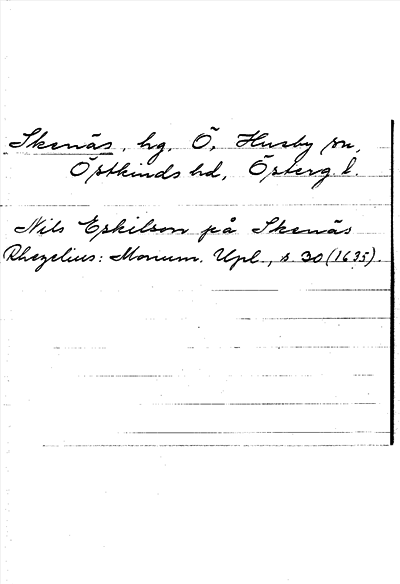 Skenäs, hg, Ö. Husby sn,
Östkinds hd, Österg. l.
Nils Eskilson på Skenäs
Rhezelius: Monum. Upl., s 30 (1635).